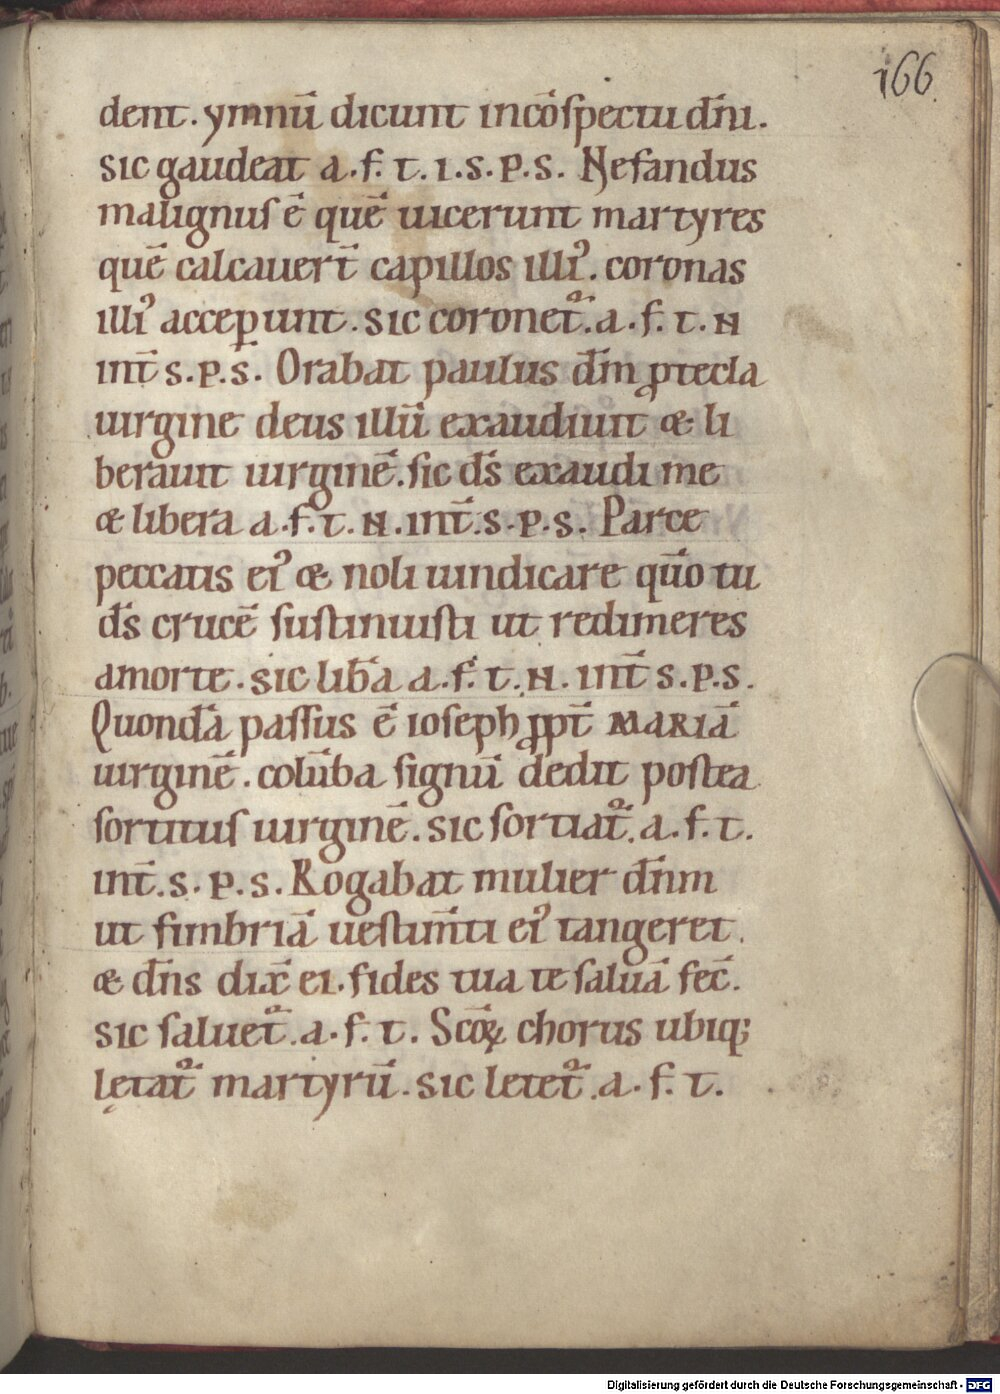 166
dent. ymnū dicunt incōspectu dn̄i.
sic gaudeat a.f.t.i.s.p.s. Nefandus
malignus ē quē uicerunt martyres
quē calcauert̄ capillos illiꝰ. coronas
illiꝰ acceperunt. sic coronet᷑. a.f.t.N
int̄ s.p.s. Orabat paulus dm̄ ꝓ tecla
uirgine deus illū exaudiuit & li
berauit uirginē. sic ds̄ exaudi me
& libera a.f.t.N. int̄.s.p.s. Parce
peccatis eiꝰ & noli uindicare qūo tu
ds̄ crucē sustinuisti ut redimeres
amorte. sic lib̄a a.f.t.N. int̄ s.p.s.
Quondā passus ē ioseph ꝓpt̄ MARIĀ
uirginē. colūba signū dedit postea
sortitus uirginē. sic sortiat᷑. a.f.t.
int̄.s.p.s. Rogabat mulier dn̄m
ut fimbriā uestim̄ti eiꝰ tangeret.
& dn̄s dix̄ ei. fides tua te saluā fec̄.
sic saluet᷑. a.f.t. Scōꝝ chorus ubiqꝫ
lętat᷑ martyrū. sic letet᷑. a.f.t.
Digitalisierung gefördert durch die Deutsche Forschungsgemeinschaft - DFG